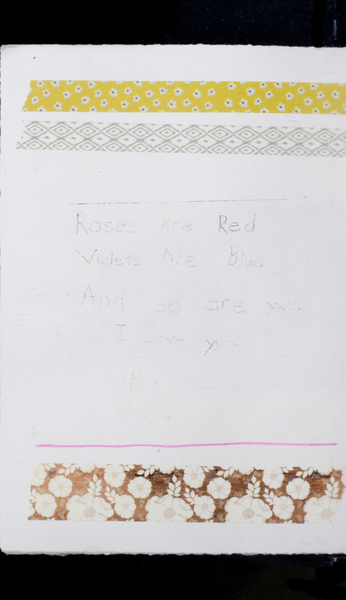 Roses Are Red
Violets Are Blue
And so are you
I love you